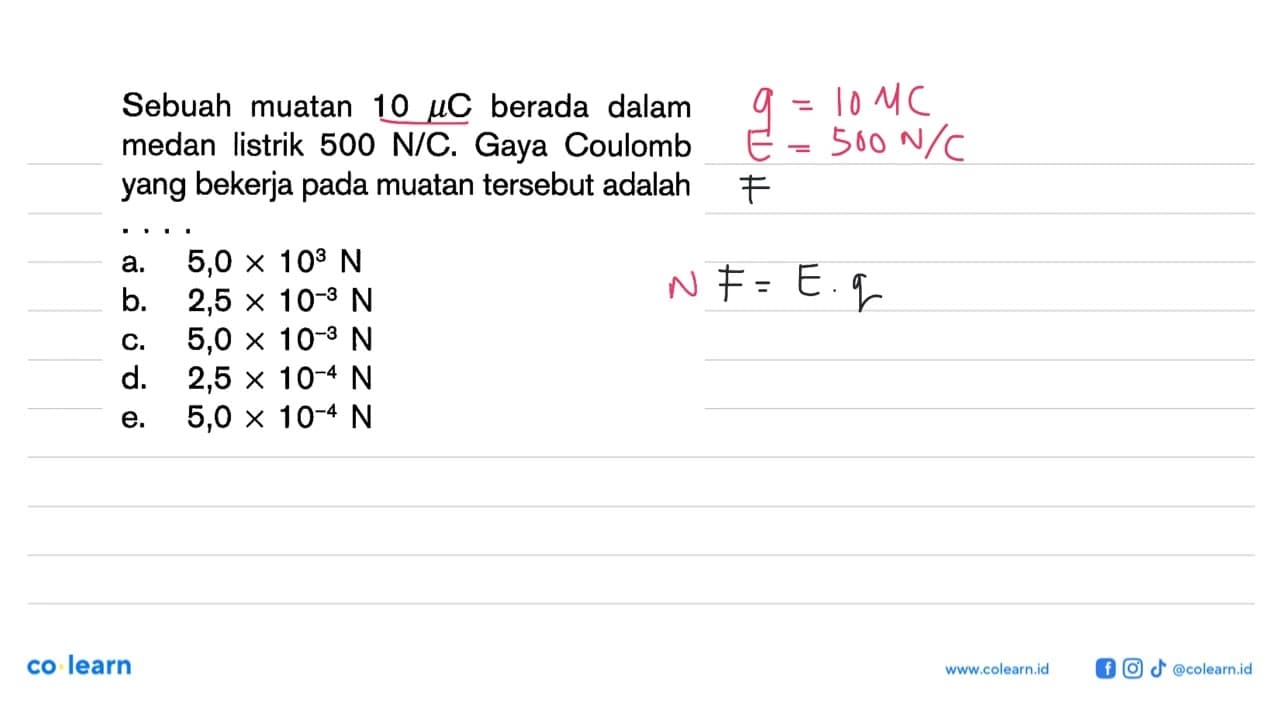 Sebuah muatan 10 μC berada dalam
medan listrik 500 N/C. Gaya Coulomb
yang bekerja pada muatan tersebut adalah
. . . .
a. 5,0 × 10³ N
b. 2,5 × 10⁻³ N
c. 5,0 × 10⁻³ N
d. 2,5 × 10⁻⁴ N
e. 5,0 × 10⁻⁴ N
q = 10 μC
E = 500 N/C
F
N F = E . q
co learn
www.colearn.id
@colearn.id